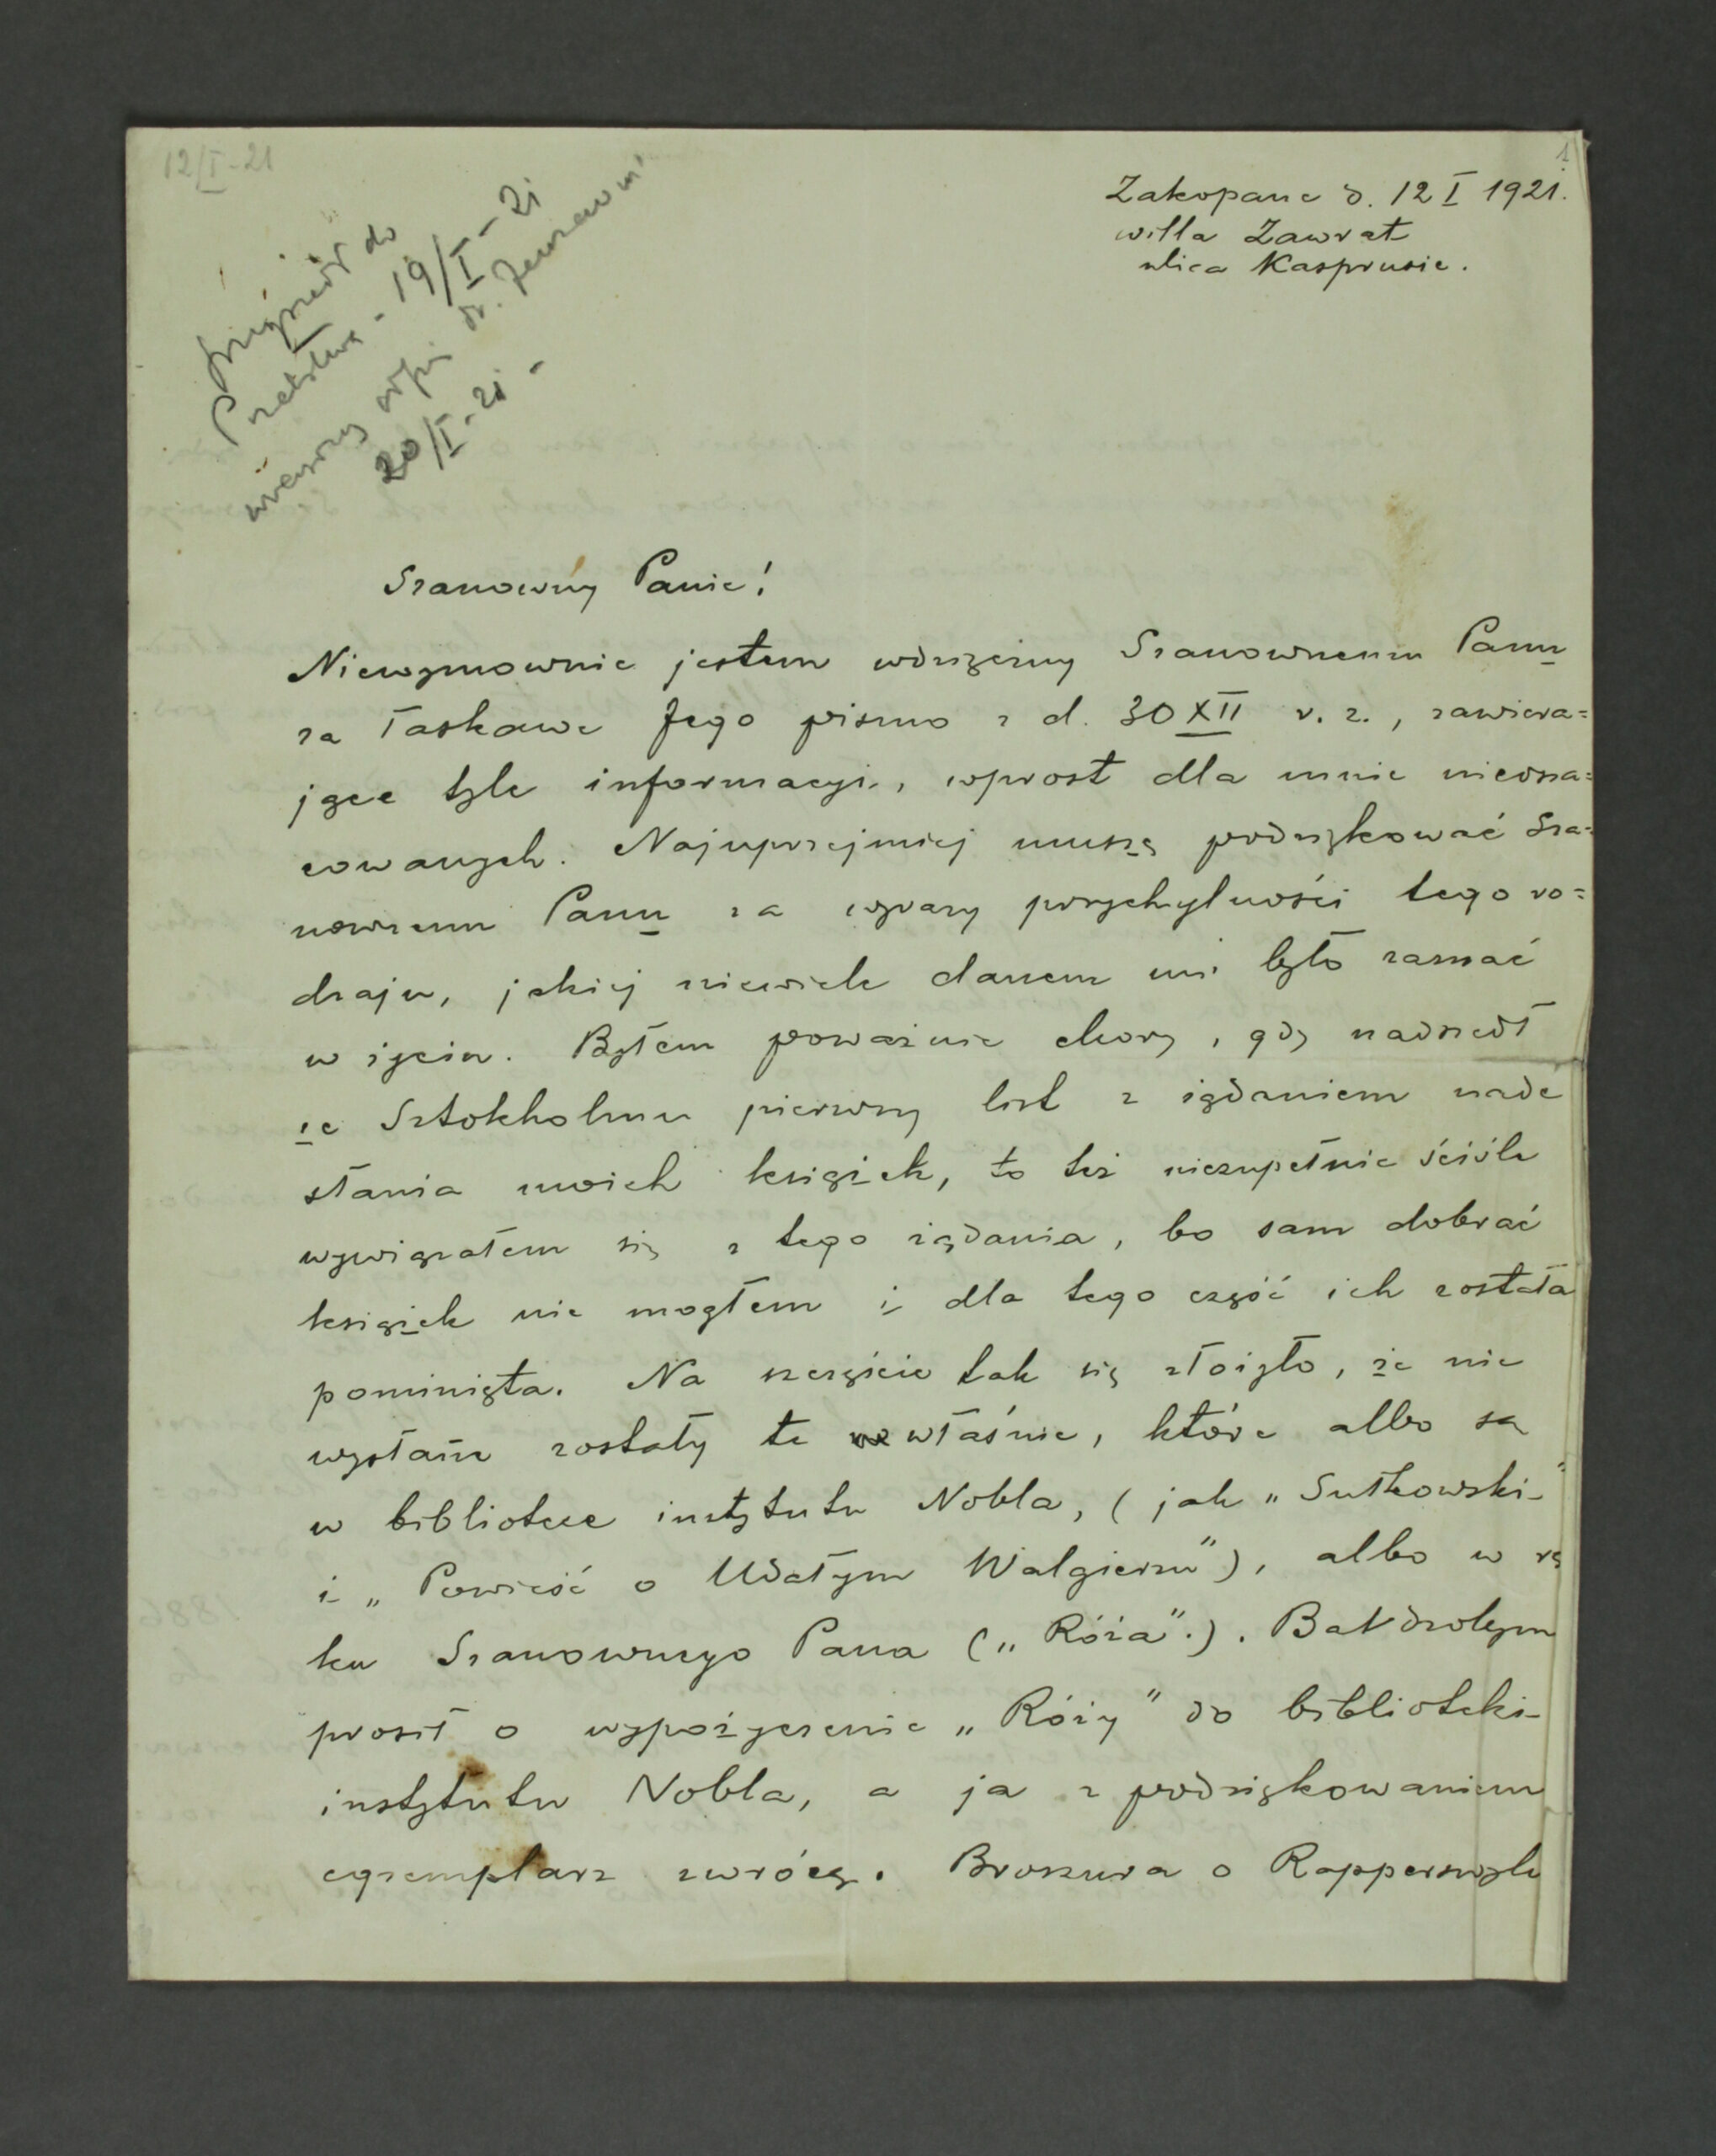 12/I-21
1
Zakopane d. 12 I 1921.
willa Zawrat
ulica Kasprusie.
do
19/I - 21
20/I - 21 -
Szanowny Panie!
Niewymownie jestem wdzięczny Szanownemu Panu
za łaskawe Jego pismo z d. 30 XII r. z., zawiera=
jące tyle informacyi, wprost dla mnie nieosza=
cowanych. Najuprzejmiej muszę podziękować Sza=
nownemu Panu za wyrazy przychylności tego ro=
dzaju, jakiej niewiele danem mi było zaznać
w życiu. Byłem poważnie chory, gdy nadszedł
ze Sztokholmu pierwszy list z żądaniem nade
słania moich książek, to też niezupełnie ściśle
wywiązałem się z tego żądania, bo sam dobrać
książek nie mogłem i dla tego część ich została
pominięta. Na szczęście tak się złożyło, że nie
wysłane zostały te właśnie, które albo są
w bibliotece instytutu Nobla, (jak „Sułkowski"
i „Powieść o Udałym Walgierzu"), albo w rę
ku Szanownego Pana („Róża".). Będę
prosił o wypożyczenie „Róży" do biblioteki
instytutu Nobla, a ja z podziękowaniem
egzemplarz zwrócę. Broszura o Rapperswylu